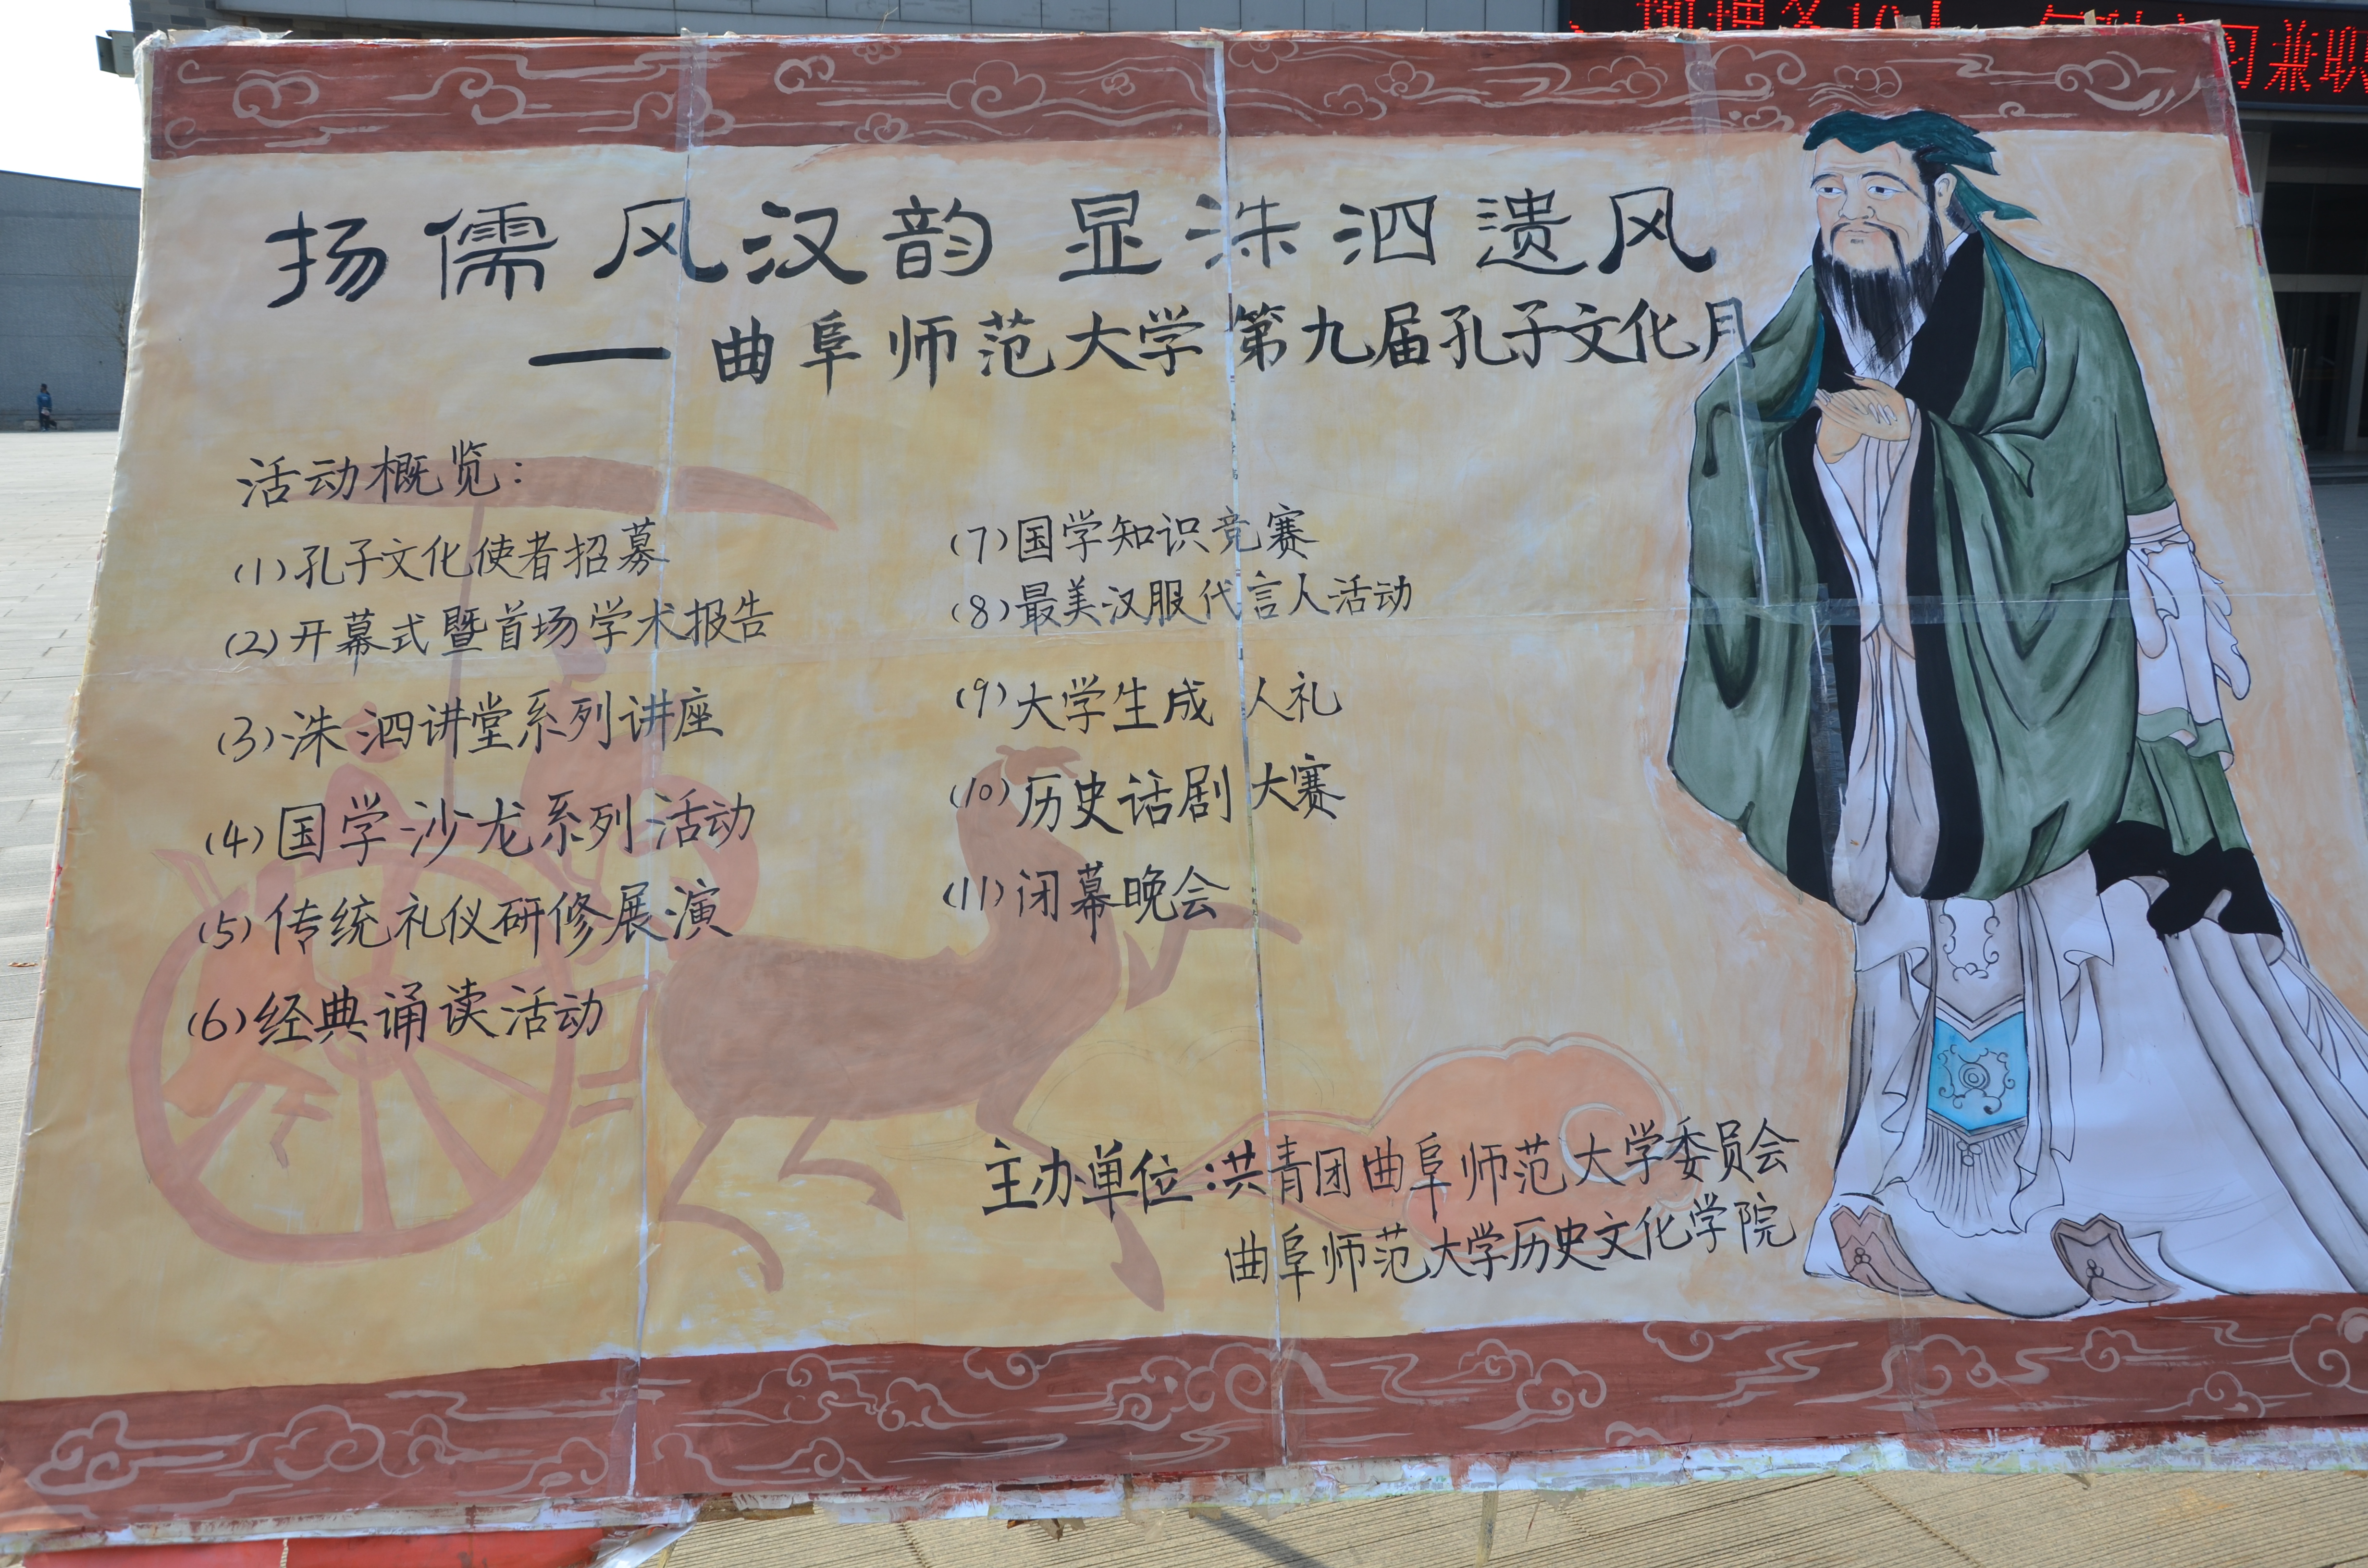 扬儒风汉韵 显洙泗遗风
——曲阜师范大学第九届孔子文化月
活动概览:
(1)孔子文化使者招募
(2)开幕式暨首场学术报告
(3)洙泗讲堂系列讲座
(4)国学沙龙系列活动
(5)传统礼仪研修展演
(6)经典诵读活动
(7)国学知识竞赛
(8)最美汉服代言人活动
(9)大学生成人礼
(10)历史话剧大赛
(11)闭幕晚会
主办单位:共青团曲阜师范大学委员会
曲阜师范大学历史文化学院
习兼职